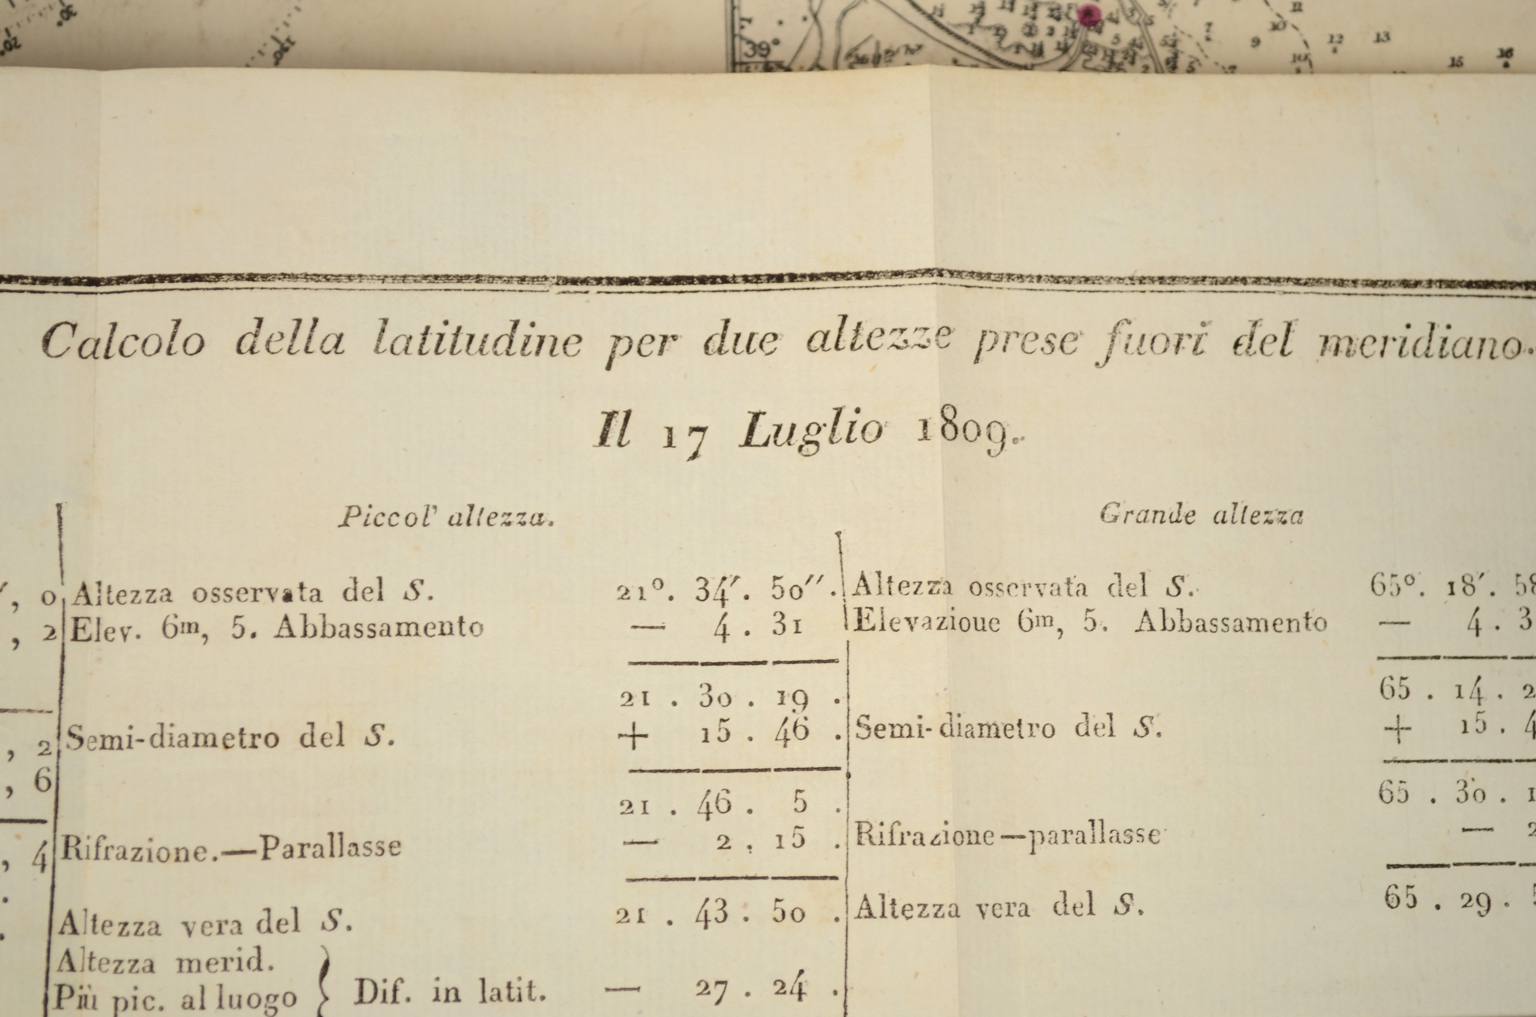 39°
Calcolo della latitudine per due altezze prese fuori del meridiano.
Il 17 Luglio 1809.
Piccol' altezza.
′, 0 Altezza osservata del S. 21°. 34′. 50″.
, 2 Elev. 6m, 5. Abbassamento — 4 . 31
21 . 30 . 19 .
, 2 Semi-diametro del S. + 15 . 46 .
, 6
21 . 46 . 5 .
, 4 Rifrazione.—Parallasse — 2 . 15 .
Altezza vera del S. 21 . 43 . 50 .
Altezza merid.
Più pic. al luogo } Dif. in latit. — 27 . 24 .
Grande altezza
Altezza osservata del S. 65°. 18′. 58
Elevazioue 6m, 5. Abbassamento — 4 . 3
65 . 14 . 2
Semi-diametro del S. + 15 . 4
65 . 30 . 1
Rifrazione—parallasse — 2
Altezza vera del S. 65 . 29 . 5